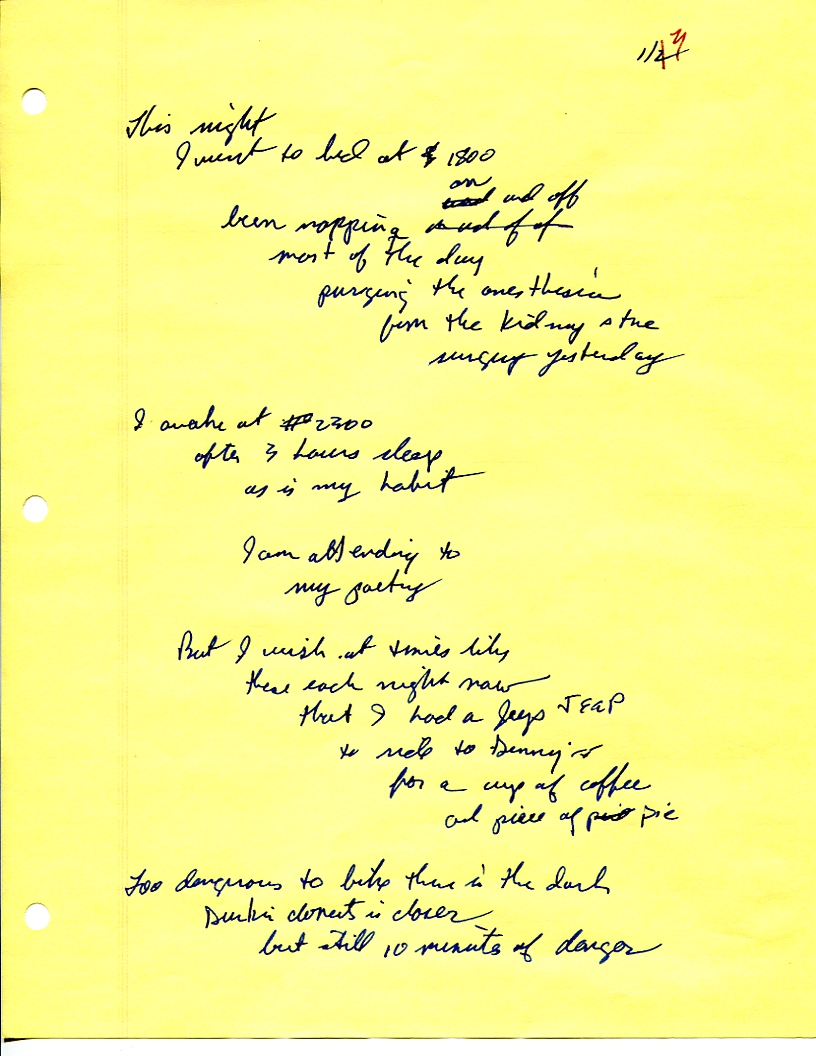 1/23
This night
I went to bed at 1800
on
and off
been napping
most of the day
purging the anesthesia
from the kidney stone
surgery yesterday
I awake at 2300
after 3 hours sleep
as is my habit
I am attending to
my poetry
But I wish at times like
these each night now
that I had a Jeep JEEP
to ride to Denny's
for a cup of coffee
and piece of pie
Too dangerous to bike there in the dark
Dunkin donuts is closer
but still 10 minutes of danger